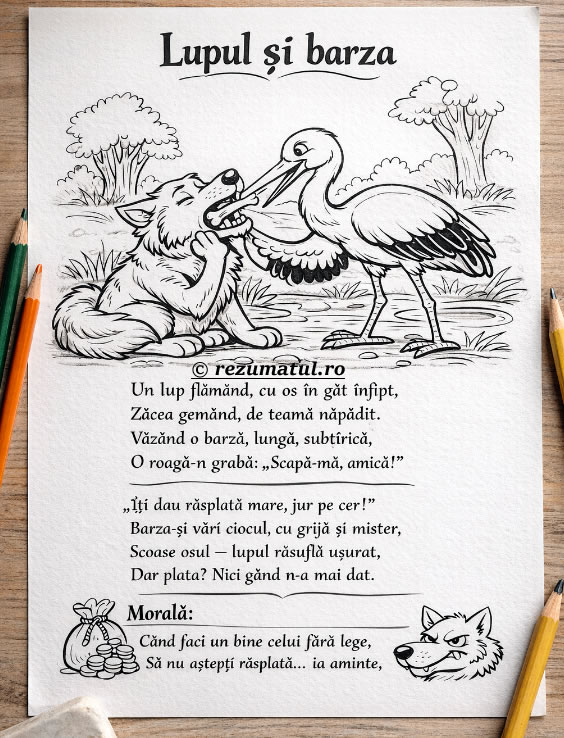 Lupul și barza
© rezumatul.ro
Un lup flămănd, cu os în găt înfipt,
Zăcea gemănd, de teamă năpădit.
Văzănd o barză, lungă, subțirică,
O roagă-n grabă: „Scapă-mă, amică!”
„Îți dau răsplată mare, jur pe cer!”
Barza-și vări ciocul, cu grijă și mister,
Scoase osul – lupul răsuflă ușurat,
Dar plata? Nici gănd n-a mai dat.
Morală:
Cănd faci un bine celui fără lege,
Să nu aștepți răsplată... ia aminte,